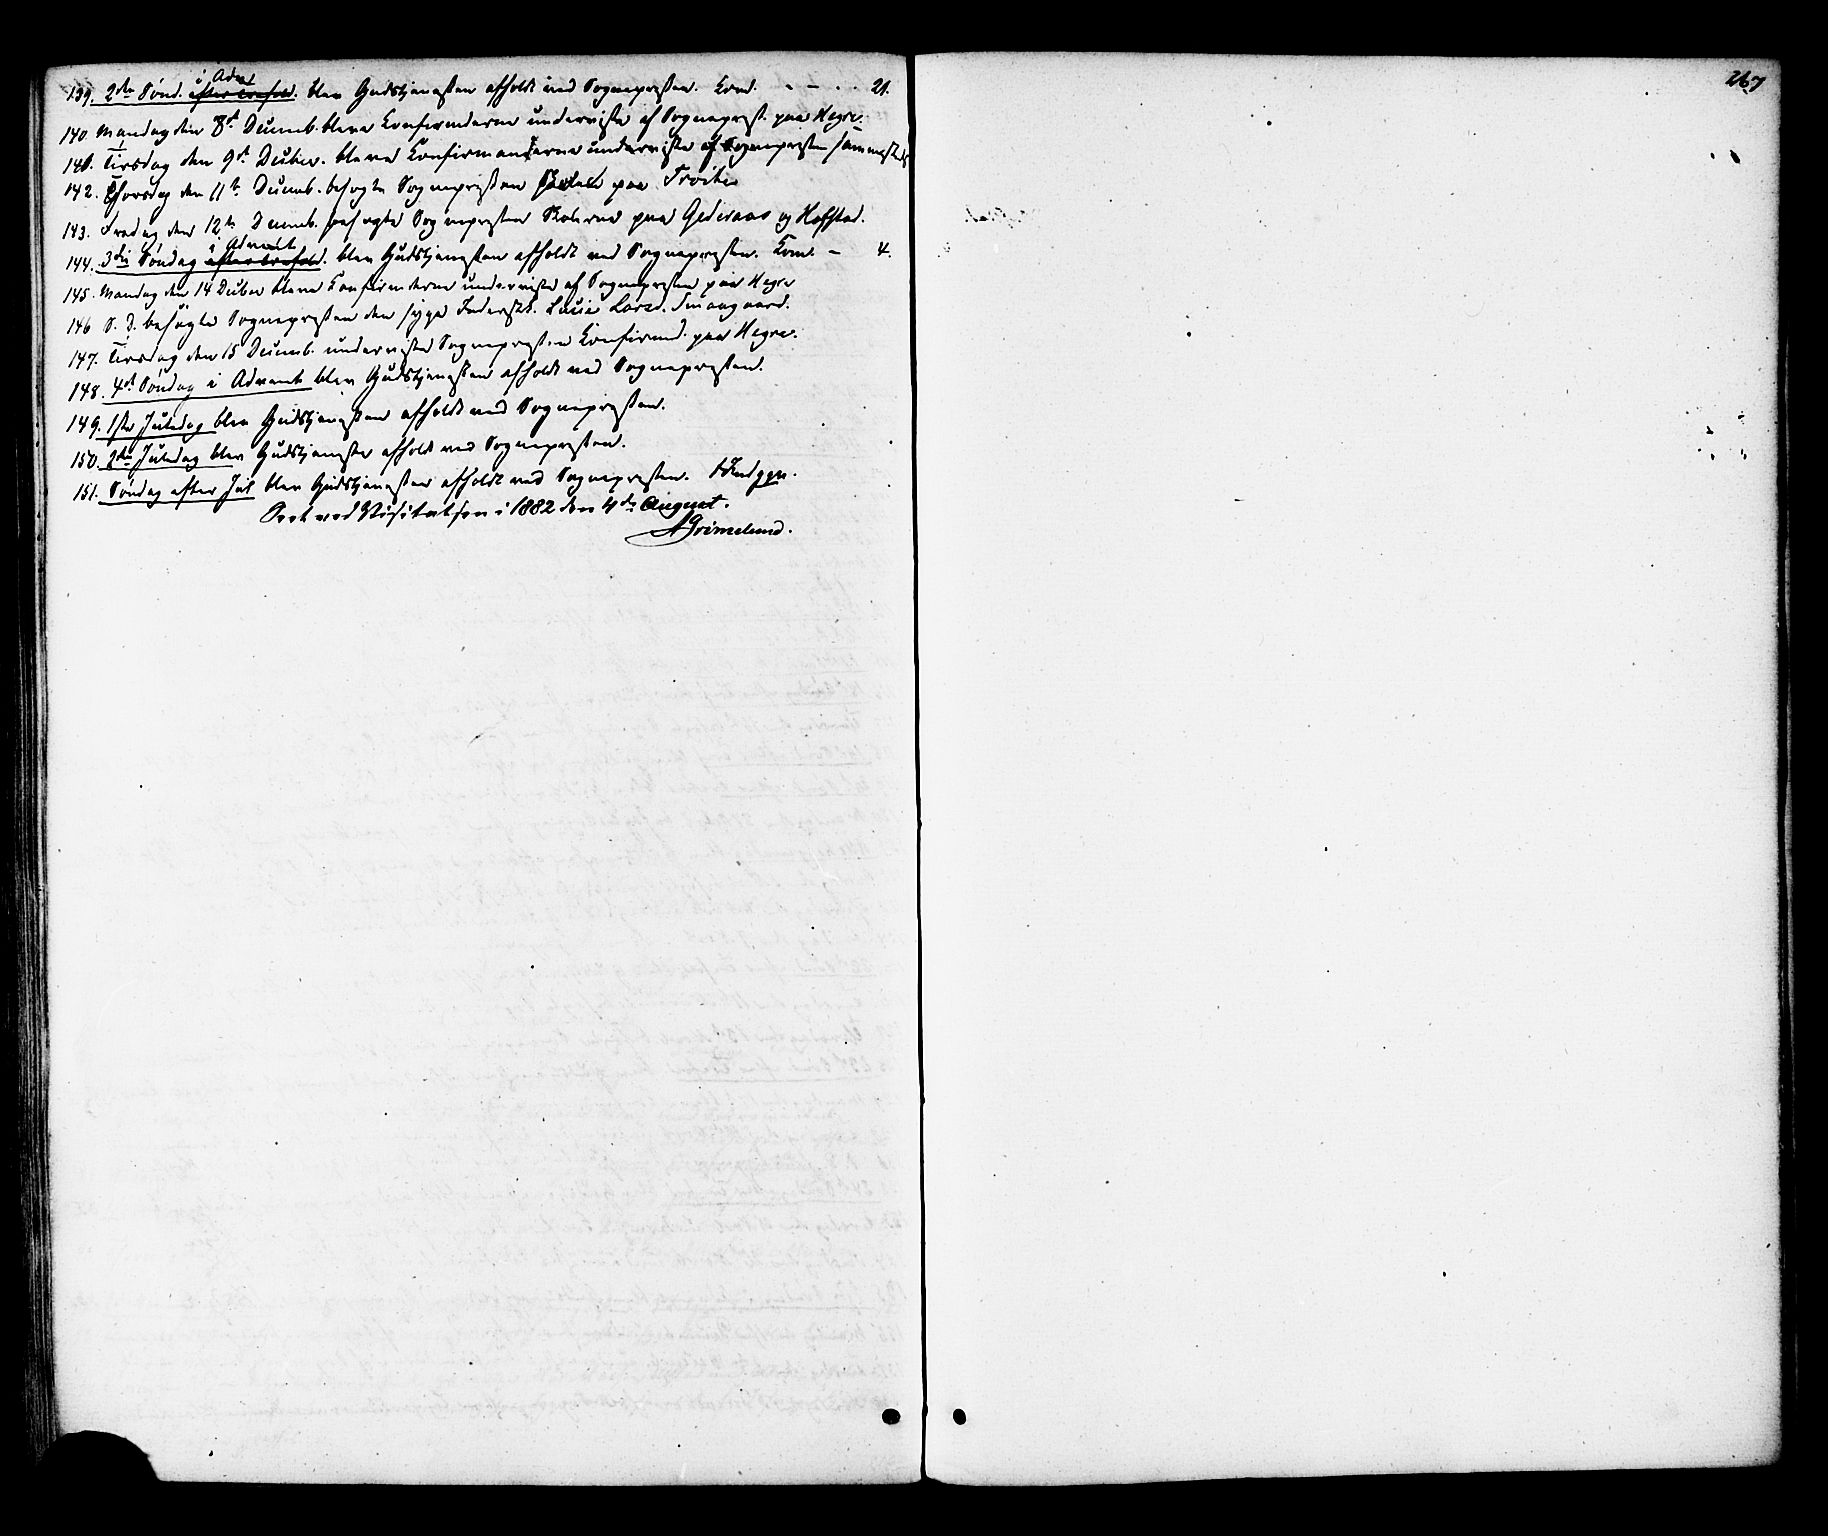 i Advt
139. 2den Sønd. efter Trefold. blev Gudstjenesten afholdt ved Sognepresten. Kom. - - . . 21.
140. Mandag den 8de Decemb. bleve Konfirmderne underviste af Sogneprest. paa Hegre.
141. Tirsdag den 9de Decbr. bleve Konfirmanderne underviste af Sognepresten sammesteds
142. Thorsdag den 11te Decemb. besøgte Sognepresten Skolen paa
143. Fredag den 12te Decemb. besøgte Sognepresten Skolerne paa Gederaas og Hofstad.
i Advent
144. 3die Søndag efter Trefold. blev Gudstjenesten afholdt ved Sognepresten. Kom. - 4.
145. Mandag den 14 Decber bleve Konfirmderne underviste af Sognepresten paa Hegre
146 S. D. besøgte Sognepresten den syge Inderstk. Larsd. Smaagaard.
147. Tirsdag den 15 Decemb. underviste Sognepresten Konfirmd. paa Hegre.
148. 4de Søndag i Advent blev Gudstjenesten afholdt ved Sognepresten.
149. 1ste Juledag blev Gudstjenesten afholdt ved Sognepresten.
150. 2den Juledag blev Gudstjenesten afholdt ved Sognepresten.
151. Søndag efter Jul blev Gudstjenesten afholdt ved Sognepresten.
Seet ved Visitatsen i 1882 den 4de August.
AGrimelund.
267